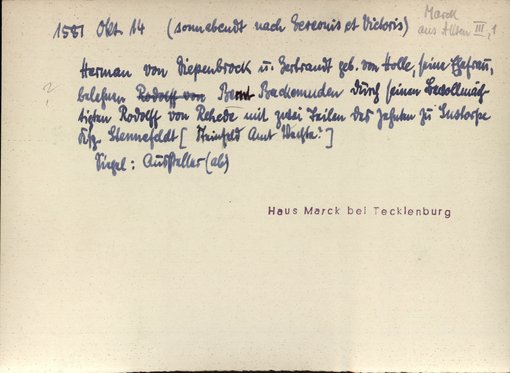 1581 Okt. 14 (sonnabendt nach Gereonis et Victoris)
Marck
aus Akten III, 1
Herman von Diepenbrock u. Gertrandt geb. von Holle, seine Ehefrau,
belehnen Rodolff von Bernt Backemuden durch seinen Bevollmäch-
tigten Rodolff von Rehede mit zwei Teilen des Zehnten zu Lustorpe
Ksp. Stennefeldt [Steinfeld Amt Vechta?]
Siegel: Aussteller (ab)
Haus Marck bei Tecklenburg